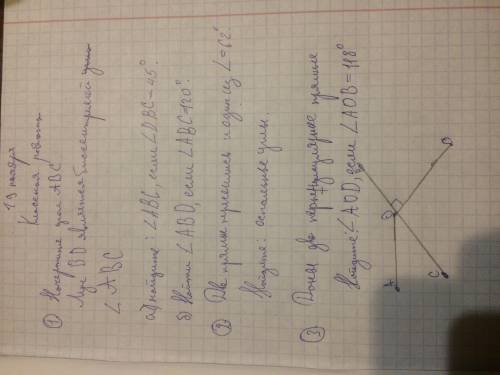 29 ноября
Классная работа
① Начертите угол ABC
Луч BD является биссектрисой угла
∠ABC
а) найдите: ∠ABC, если ∠DBC=45°.
б) Найти ∠ABD, если ∠ABC=120°.
② Две прямые пересеклись и один из ∠=62°
Найдите: остальные углы.
③ Даны две перпендикулярные прямые
Найдите: ∠AOD, если ∠AOB=118°
B
O
A
C